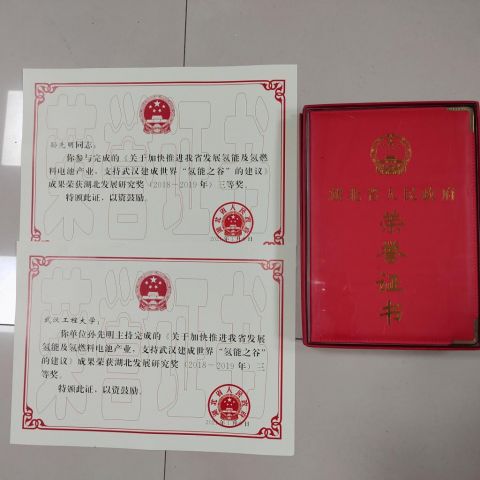 孙先明同志：
你参与完成的《关于加快推进我省发展氢能及氢燃
料电池产业，支持武汉建成世界“氢能之谷”的建议》
成果荣获湖北发展研究奖（2018－2019年）三等奖。
特颁此证，以资鼓励。
湖北省人民政府
武汉工程大学：
你单位孙先明主持完成的《关于加快推进我省发展
氢能及氢燃料电池产业，支持武汉建成世界“氢能之谷”
的建议》成果荣获湖北发展研究奖（2018－2019年）三
等奖。
特颁此证，以资鼓励。
湖北省人民政府
湖北省人民政府
荣誉证书